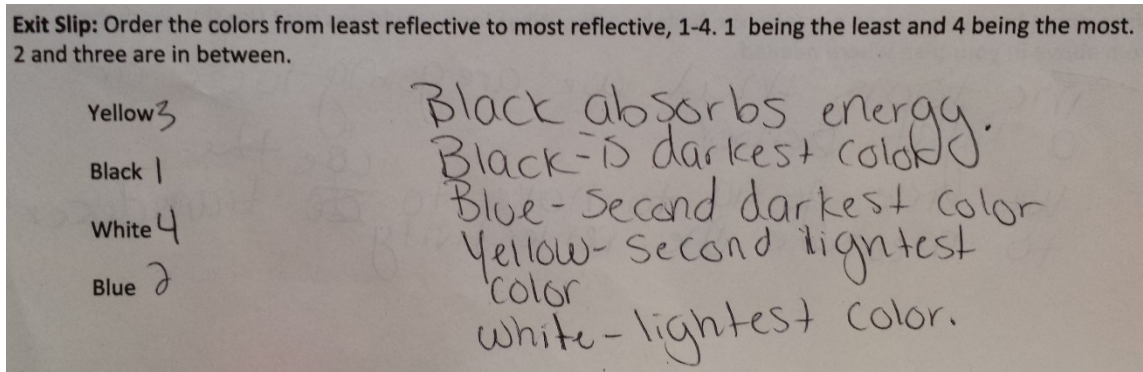 Exit Slip: Order the colors from least reflective to most reflective, 1-4. 1 being the least and 4 being the most.
2 and three are in between.
Yellow 3
Black 1
White 4
Blue 2
Black absorbs energy.
Black - is darkest color
Blue - Second darkest color
Yellow - second lightest
color
white - lightest color.